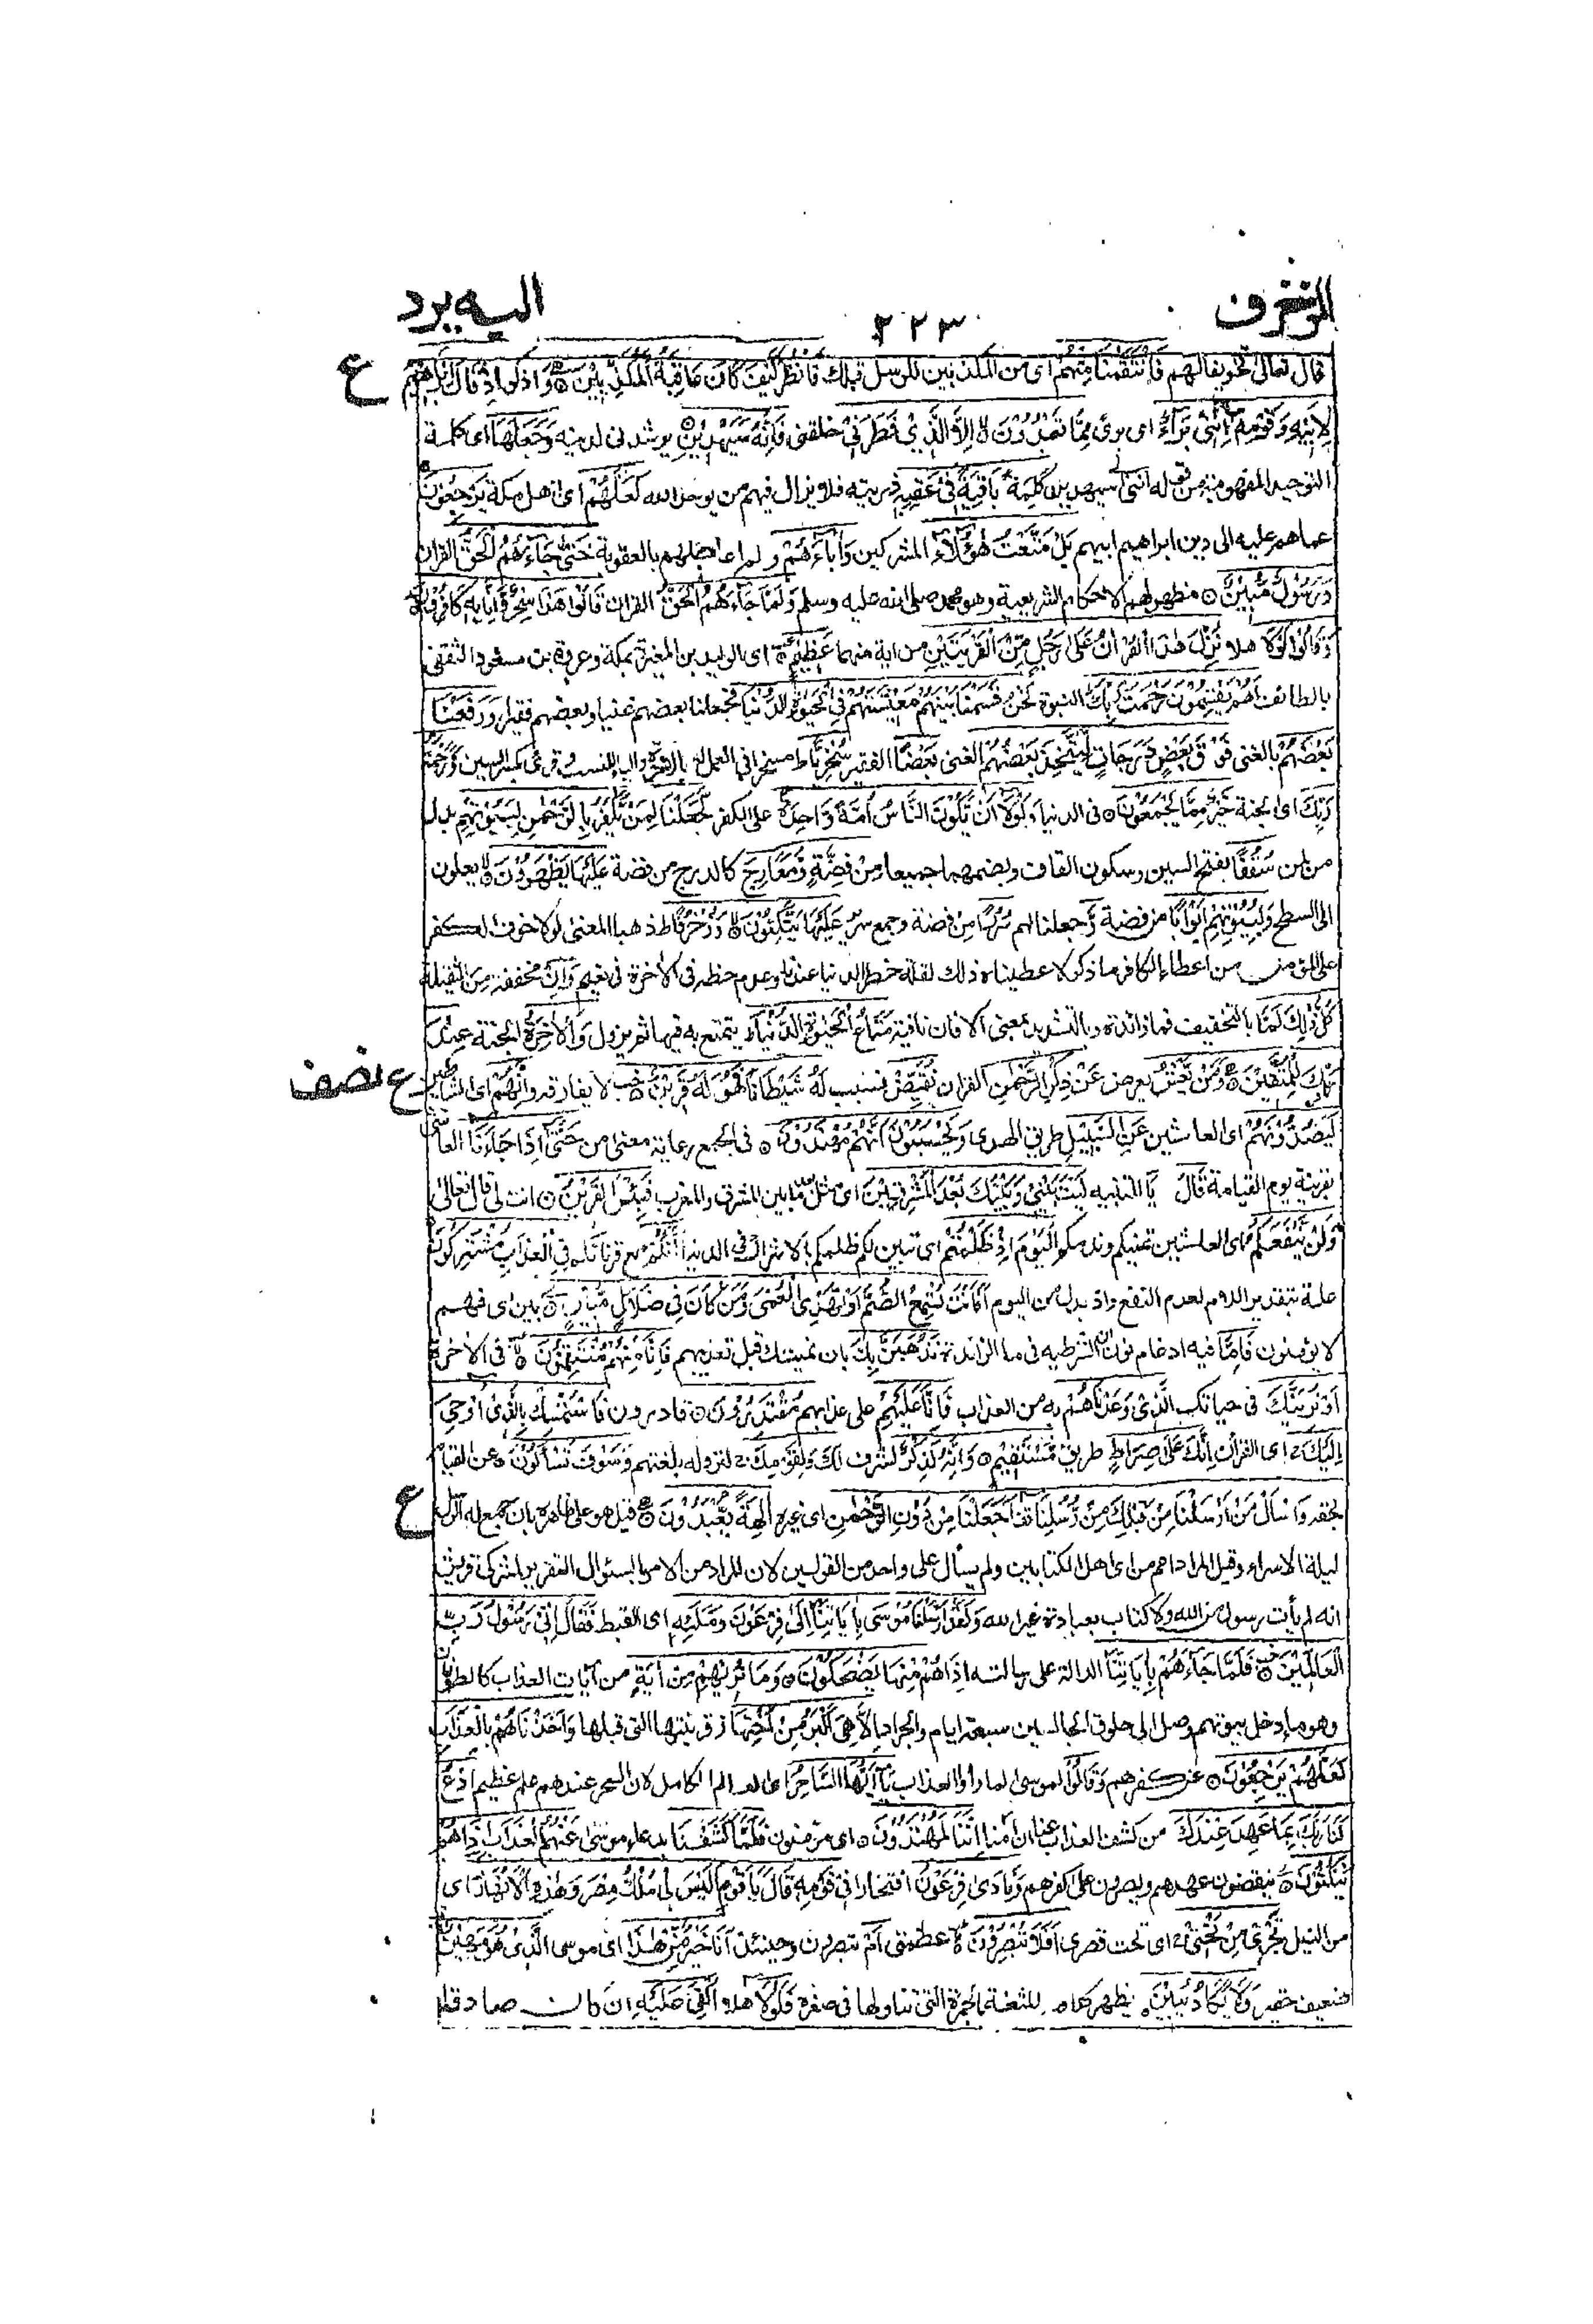 الزخرف
٢٢٣
اليه يرد
قال تعالى تخويفا لهم فَانْتَقَمْنَا مِنْهُمْ اى من المكذبين للرسل قبلك فَانْظُرْ كَيْفَ كَانَ عَاقِبَةُ الْمُكَذِّبِيْنَ وَ اذكر اِذْ قَالَ اِبْرَاهِيْمُ
ع
لِاَبِيْهِ وَقَوْمِهٖ اِنَّنِيْ بَرَآءٌ اى برئ مِمَّا تَعْبُدُوْنَ اِلَّا الَّذِيْ فَطَرَنِيْ خلقنى فَاِنَّهٗ سَيَهْدِيْنِ يرشدنى لدينه وَجَعَلَهَا اى كلمة
التوحيد المفهومة من قوله اننى سيهدين كَلِمَةً بَاقِيَةً فِيْ عَقِبِهٖ ذريته فلا يزال فيهم من يوحد الله لَعَلَّهُمْ اى اهل مكة يَرْجِعُوْنَ
عما هم عليه الى دين ابراهيم ابيهم بَلْ مَتَّعْتُ هٰٓؤُلَآءِ المشركين وَاٰبَآءَهُمْ ولم اعاجلهم بالعقوبة حَتّٰى جَآءَهُمُ الْحَقُّ القران
وَرَسُوْلٌ مُّبِيْنٌ مظهر لهم الاحكام الشرعية وهو محمد صلى الله عليه وسلم وَلَمَّا جَآءَهُمُ الْحَقُّ القران قَالُوْا هٰذَا سِحْرٌ وَّاِنَّا بِهٖ كَافِرُوْنَ
وَقَالُوْا لَوْلَا هلا نُزِّلَ هٰذَا الْقُرْاٰنُ عَلٰى رَجُلٍ مِّنَ الْقَرْيَتَيْنِ من اية منهما عَظِيْمٍ اى الوليد بن المغيرة بمكة وعروة بن مسعود الثقفى
بالطائف اَهُمْ يَقْسِمُوْنَ رَحْمَتَ رَبِّكَ النبوة نَحْنُ قَسَمْنَا بَيْنَهُمْ مَعِيْشَتَهُمْ فِي الْحَيٰوةِ الدُّنْيَا فجعلنا بعضهم غنيا وبعضهم فقيرا وَرَفَعْنَا
بَعْضَهُمْ بالغنى فَوْقَ بَعْضٍ دَرَجَاتٍ لِّيَتَّخِذَ بَعْضُهُمْ الغنى بَعْضًا الفقير سُخْرِيًّا ط مسخرا فى العمل له بالاجرة والياء للنسب وقرئ بكسر السين وَرَحْمَتُ
رَبِّكَ اى الجنة خَيْرٌ مِّمَّا يَجْمَعُوْنَ فى الدنيا وَلَوْلَا اَنْ يَّكُوْنَ النَّاسُ اُمَّةً وَّاحِدَةً على الكفر لَّجَعَلْنَا لِمَنْ يَّكْفُرُ بِالرَّحْمٰنِ لِبُيُوْتِهِمْ بدل
من لمن سَقْفًا بفتح السين وسكون القاف وبضمهما جميعا مِنْ فِضَّةٍ وَّمَعَارِجَ كالدرج من فضة عَلَيْهَا يَظْهَرُوْنَ يعلون
الى السطح وَلِبُيُوْتِهِمْ اَبْوَابًا من فضة وَّ جعلنا لهم سُرُرًا من فضة وجمع سرير عَلَيْهَا يَتَّكِئُوْنَ وَزُخْرُفًا ط ذهبا المعنى لولا خوف الكفر
على المؤمن من اعطاء الكافر ما ذكر لاعطيناه ذلك لقلة خطر الدنيا عندنا وعدم حظه فى الاخرة فى نعيم وَاِنْ مخففة من الثقيلة
كُلُّ ذٰلِكَ لَمَا بالتخفيف فما زائدة وبالتشديد بمعنى الا فان نافية مَتَاعُ الْحَيٰوةِ الدُّنْيَا ط يتمتع به فيها ثم يزول وَالْاٰخِرَةُ الجنة عِنْدَ
رَبِّكَ لِلْمُتَّقِيْنَ وَمَنْ يَّعْشُ يعرض عَنْ ذِكْرِ الرَّحْمٰنِ القران نُقَيِّضْ نسبب لَهٗ شَيْطَانًا فَهُوَ لَهٗ قَرِيْنٌ لا يفارقه وَاِنَّهُمْ اى الشياطين
ع نصف
لَيَصُدُّوْنَهُمْ اى العاشين عَنِ السَّبِيْلِ طريق الهدى وَيَحْسَبُوْنَ اَنَّهُمْ مُّهْتَدُوْنَ فى الجمع رعاية معنى من حَتّٰى اِذَا جَآءَنَا العاشى
بقرينه يوم القيامة قَالَ يَا للتنبيه لَيْتَ بَيْنِيْ وَبَيْنَكَ بُعْدَ الْمَشْرِقَيْنِ اى مثل بعد ما بين المشرق والمغرب فَبِئْسَ الْقَرِيْنُ انت لى قال تعالى
وَلَنْ يَّنْفَعَكُمُ اى العاشين تمنيكم وندمكم الْيَوْمَ اِذْ ظَلَمْتُمْ اى تبين لكم ظلمكم بالاشراك فى الدنيا اَنَّكُمْ مع قرنائكم فِي الْعَذَابِ مُشْتَرِكُوْنَ
علة بتقدير اللام لعدم النفع واذ بدل من اليوم اَفَاَنْتَ تُسْمِعُ الصُّمَّ اَوْ تَهْدِي الْعُمْيَ وَمَنْ كَانَ فِيْ ضَلَالٍ مُّبِيْنٍ بين اى فهم
لا يؤمنون فَاِمَّا فيه ادغام نون ان الشرطية فى ما الزائدة نَذْهَبَنَّ بِكَ بان نميتك قبل تعذيبهم فَاِنَّا مِنْهُمْ مُّنْتَقِمُوْنَ فى الاخرة
اَوْ نُرِيَنَّكَ فى حياتك الَّذِيْ وَعَدْنَاهُمْ به من العذاب فَاِنَّا عَلَيْهِمْ على عذابهم مُّقْتَدِرُوْنَ قادرون فَاسْتَمْسِكْ بِالَّذِيْ اُوْحِيَ
اِلَيْكَ اى القران اِنَّكَ عَلٰى صِرَاطٍ طريق مُّسْتَقِيْمٍ وَاِنَّهٗ لَذِكْرٌ لشرف لَّكَ وَلِقَوْمِكَ لنزوله بلغتهم وَسَوْفَ تُسْاَلُوْنَ عن القيام
بحقه وَاسْاَلْ مَنْ اَرْسَلْنَا مِنْ قَبْلِكَ مِنْ رُّسُلِنَا اَجَعَلْنَا مِنْ دُوْنِ الرَّحْمٰنِ اى غيره اٰلِهَةً يُّعْبَدُوْنَ قيل هو على ظاهره بان جمع له الرسل
ع
ليلة الاسراء وقيل المراد امم من اى اهل الكتابين ولم يسأل على واحد من القولين لان المراد من الامر بالسئوال التقرير لمشركى قريش
انه لم يأت رسول من الله ولا كتاب بعبادة غير الله وَلَقَدْ اَرْسَلْنَا مُوْسٰى بِاٰيَاتِنَا اِلٰى فِرْعَوْنَ وَمَلَئِهٖ اى القبط فَقَالَ اِنِّيْ رَسُوْلُ رَبِّ
الْعَالَمِيْنَ فَلَمَّا جَآءَهُمْ بِاٰيَاتِنَا الدالة على رسالته اِذَا هُمْ مِّنْهَا يَضْحَكُوْنَ وَمَا نُرِيْهِمْ مِّنْ اٰيَةٍ من آيات العذاب كالطوفان
وهو ماء دخل بيوتهم ووصل الى حلوق الجالسين سبعة ايام والجراد اِلَّا هِيَ اَكْبَرُ مِنْ اُخْتِهَا قرينتها التى قبلها وَاَخَذْنَاهُمْ بِالْعَذَابِ
لَعَلَّهُمْ يَرْجِعُوْنَ عن كفرهم وَقَالُوْا لموسى لما رأوا العذاب يٰٓاَيُّهَا السَّاحِرُ اى العالم الكامل لان السحر عندهم علم عظيم ادْعُ
لَنَا رَبَّكَ بِمَا عَهِدَ عِنْدَكَ من كشف العذاب عنا ان امنا اِنَّنَا لَمُهْتَدُوْنَ اى مؤمنون فَلَمَّا كَشَفْنَا بدعاء موسى عَنْهُمُ الْعَذَابَ اِذَا هُمْ
يَنْكُثُوْنَ ينقضون عهدهم ويصرون على كفرهم وَنَادٰى فِرْعَوْنُ افتخارا فِيْ قَوْمِهٖ قَالَ يَا قَوْمِ اَلَيْسَ لِيْ مُلْكُ مِصْرَ وَهٰذِهِ الْاَنْهَارُ اى
من النيل تَجْرِيْ مِنْ تَحْتِيْ اى تحت قصرى اَفَلَا تُبْصِرُوْنَ عظمتى اَمْ تبصرون وحينئذ اَنَا خَيْرٌ مِّنْ هٰذَا اى موسى الَّذِيْ هُوَ مَهِيْنٌ
ضعيف حقير وَّلَا يَكَادُ يُبِيْنُ يظهر كلامه للثغته بالجمرة التى تناولها فى صغره فَلَوْلَا هلا اُلْقِيَ عَلَيْهِ ان كان صادقا